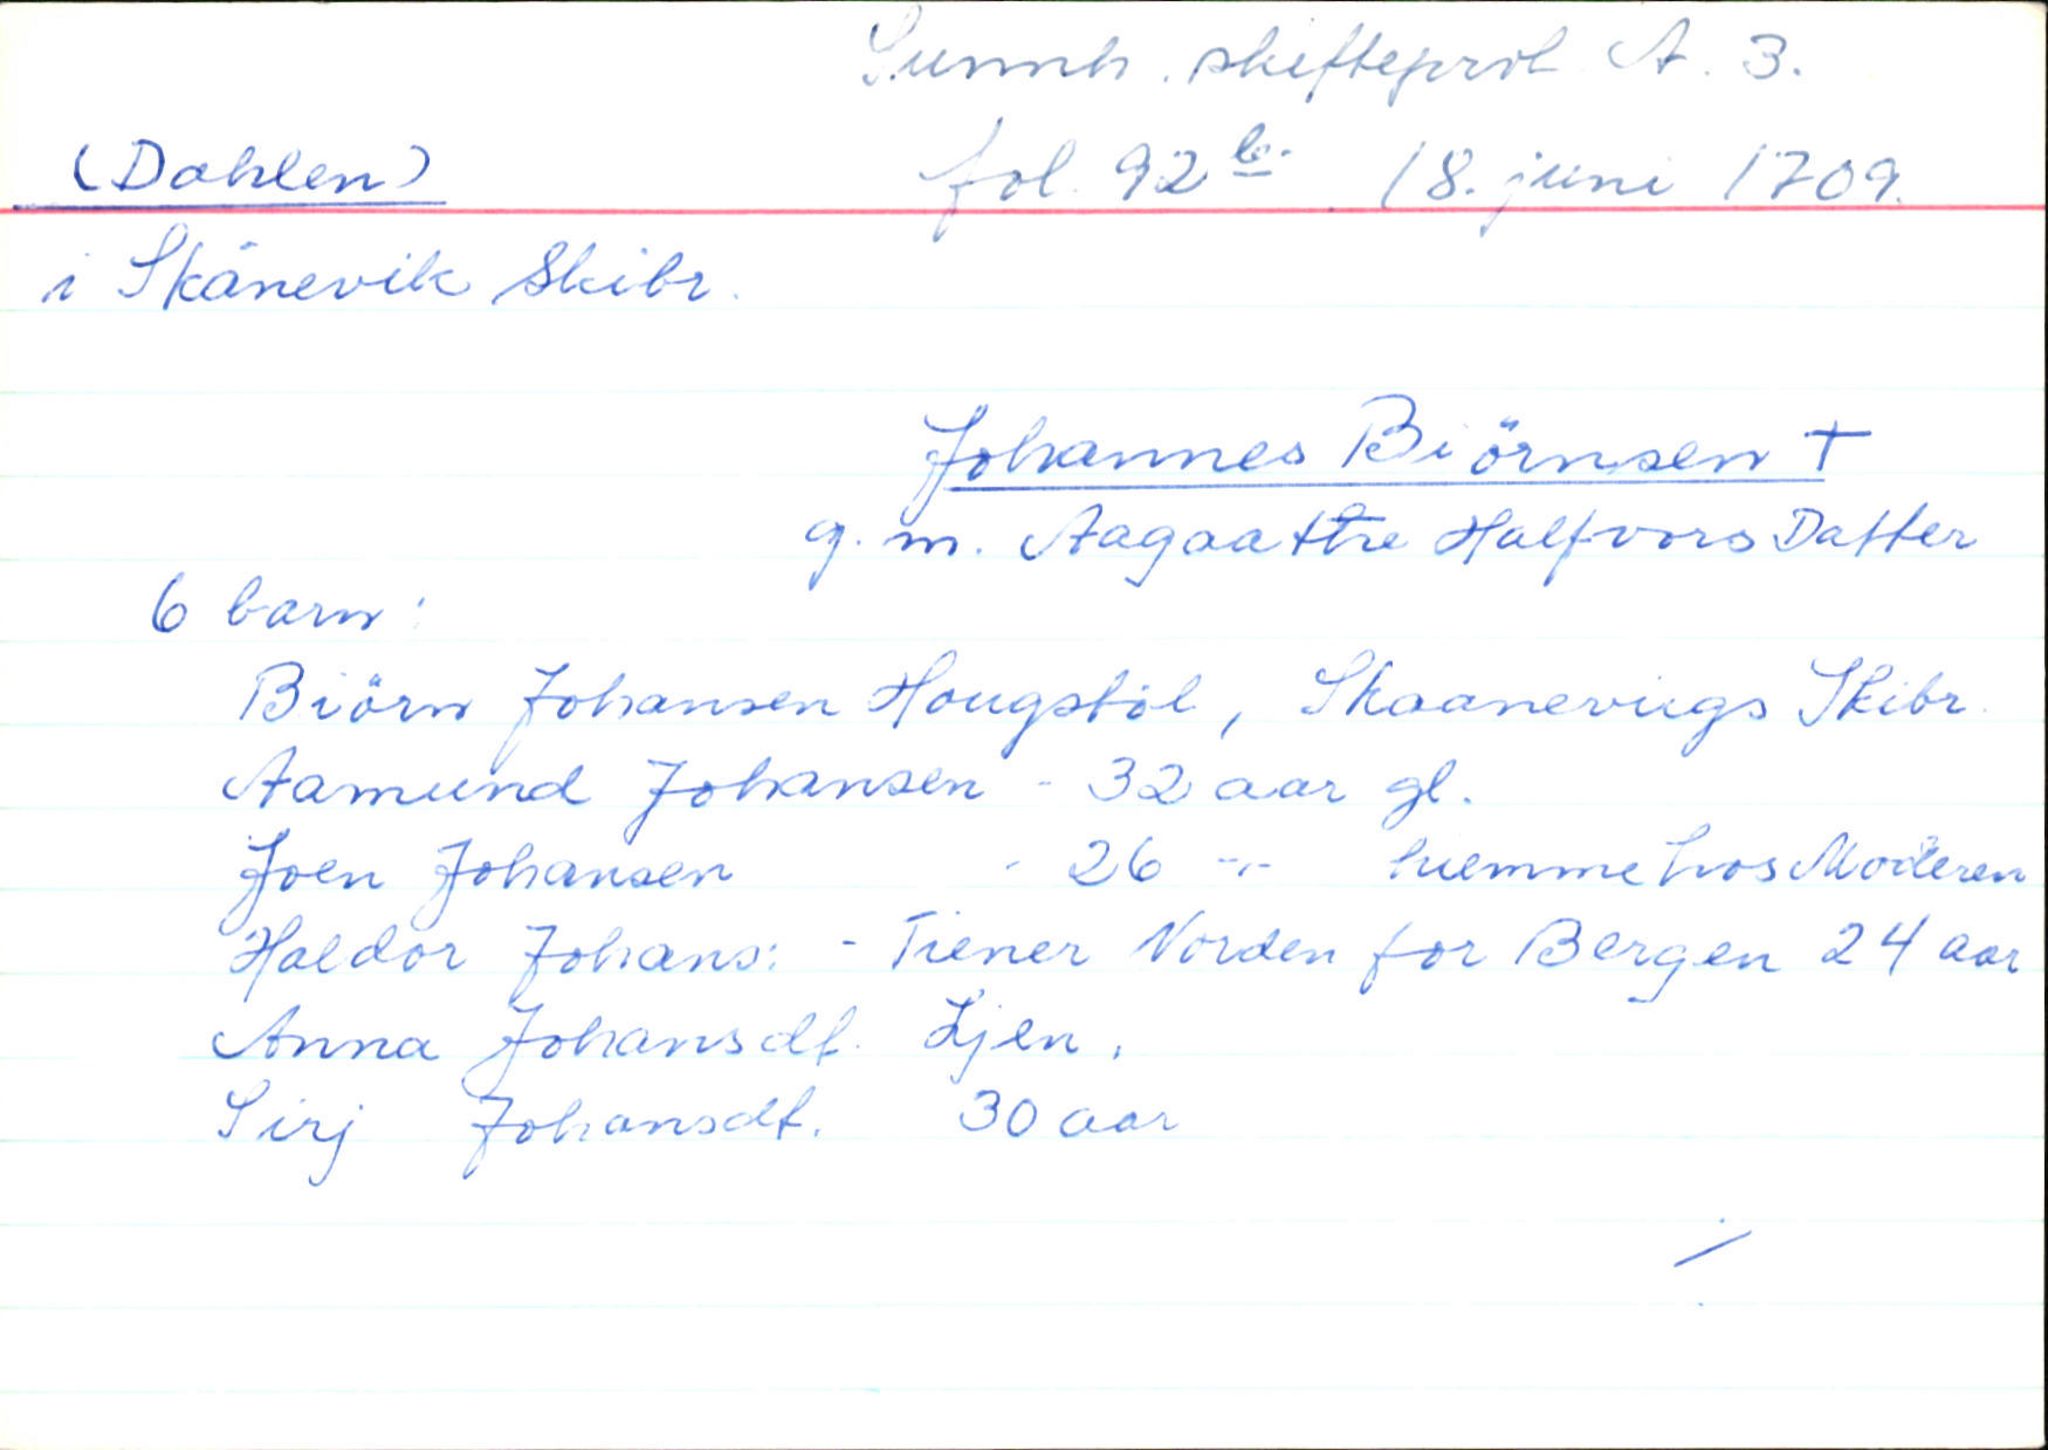 Sunnh. skifteprot A. 3.
(Dahlen) fol. 92 b. 18. juni 1709.
i Skånevik Skibr.
Johannes Biörnsen †
g. m. Aagaathe Halfvors Datter
6 barn:
Biörn Johansen Hougstöl, Skaanevigs Skibr.
Aamund Johansen - 32 aar gl.
Joen Johansen - 26 -"- hiemme hos Moderen
Haldor Johans: - Tiener Norden for Bergen 24 aar
Anna Johansdt. Ljen.
Sirj Johansdt. 30 aar